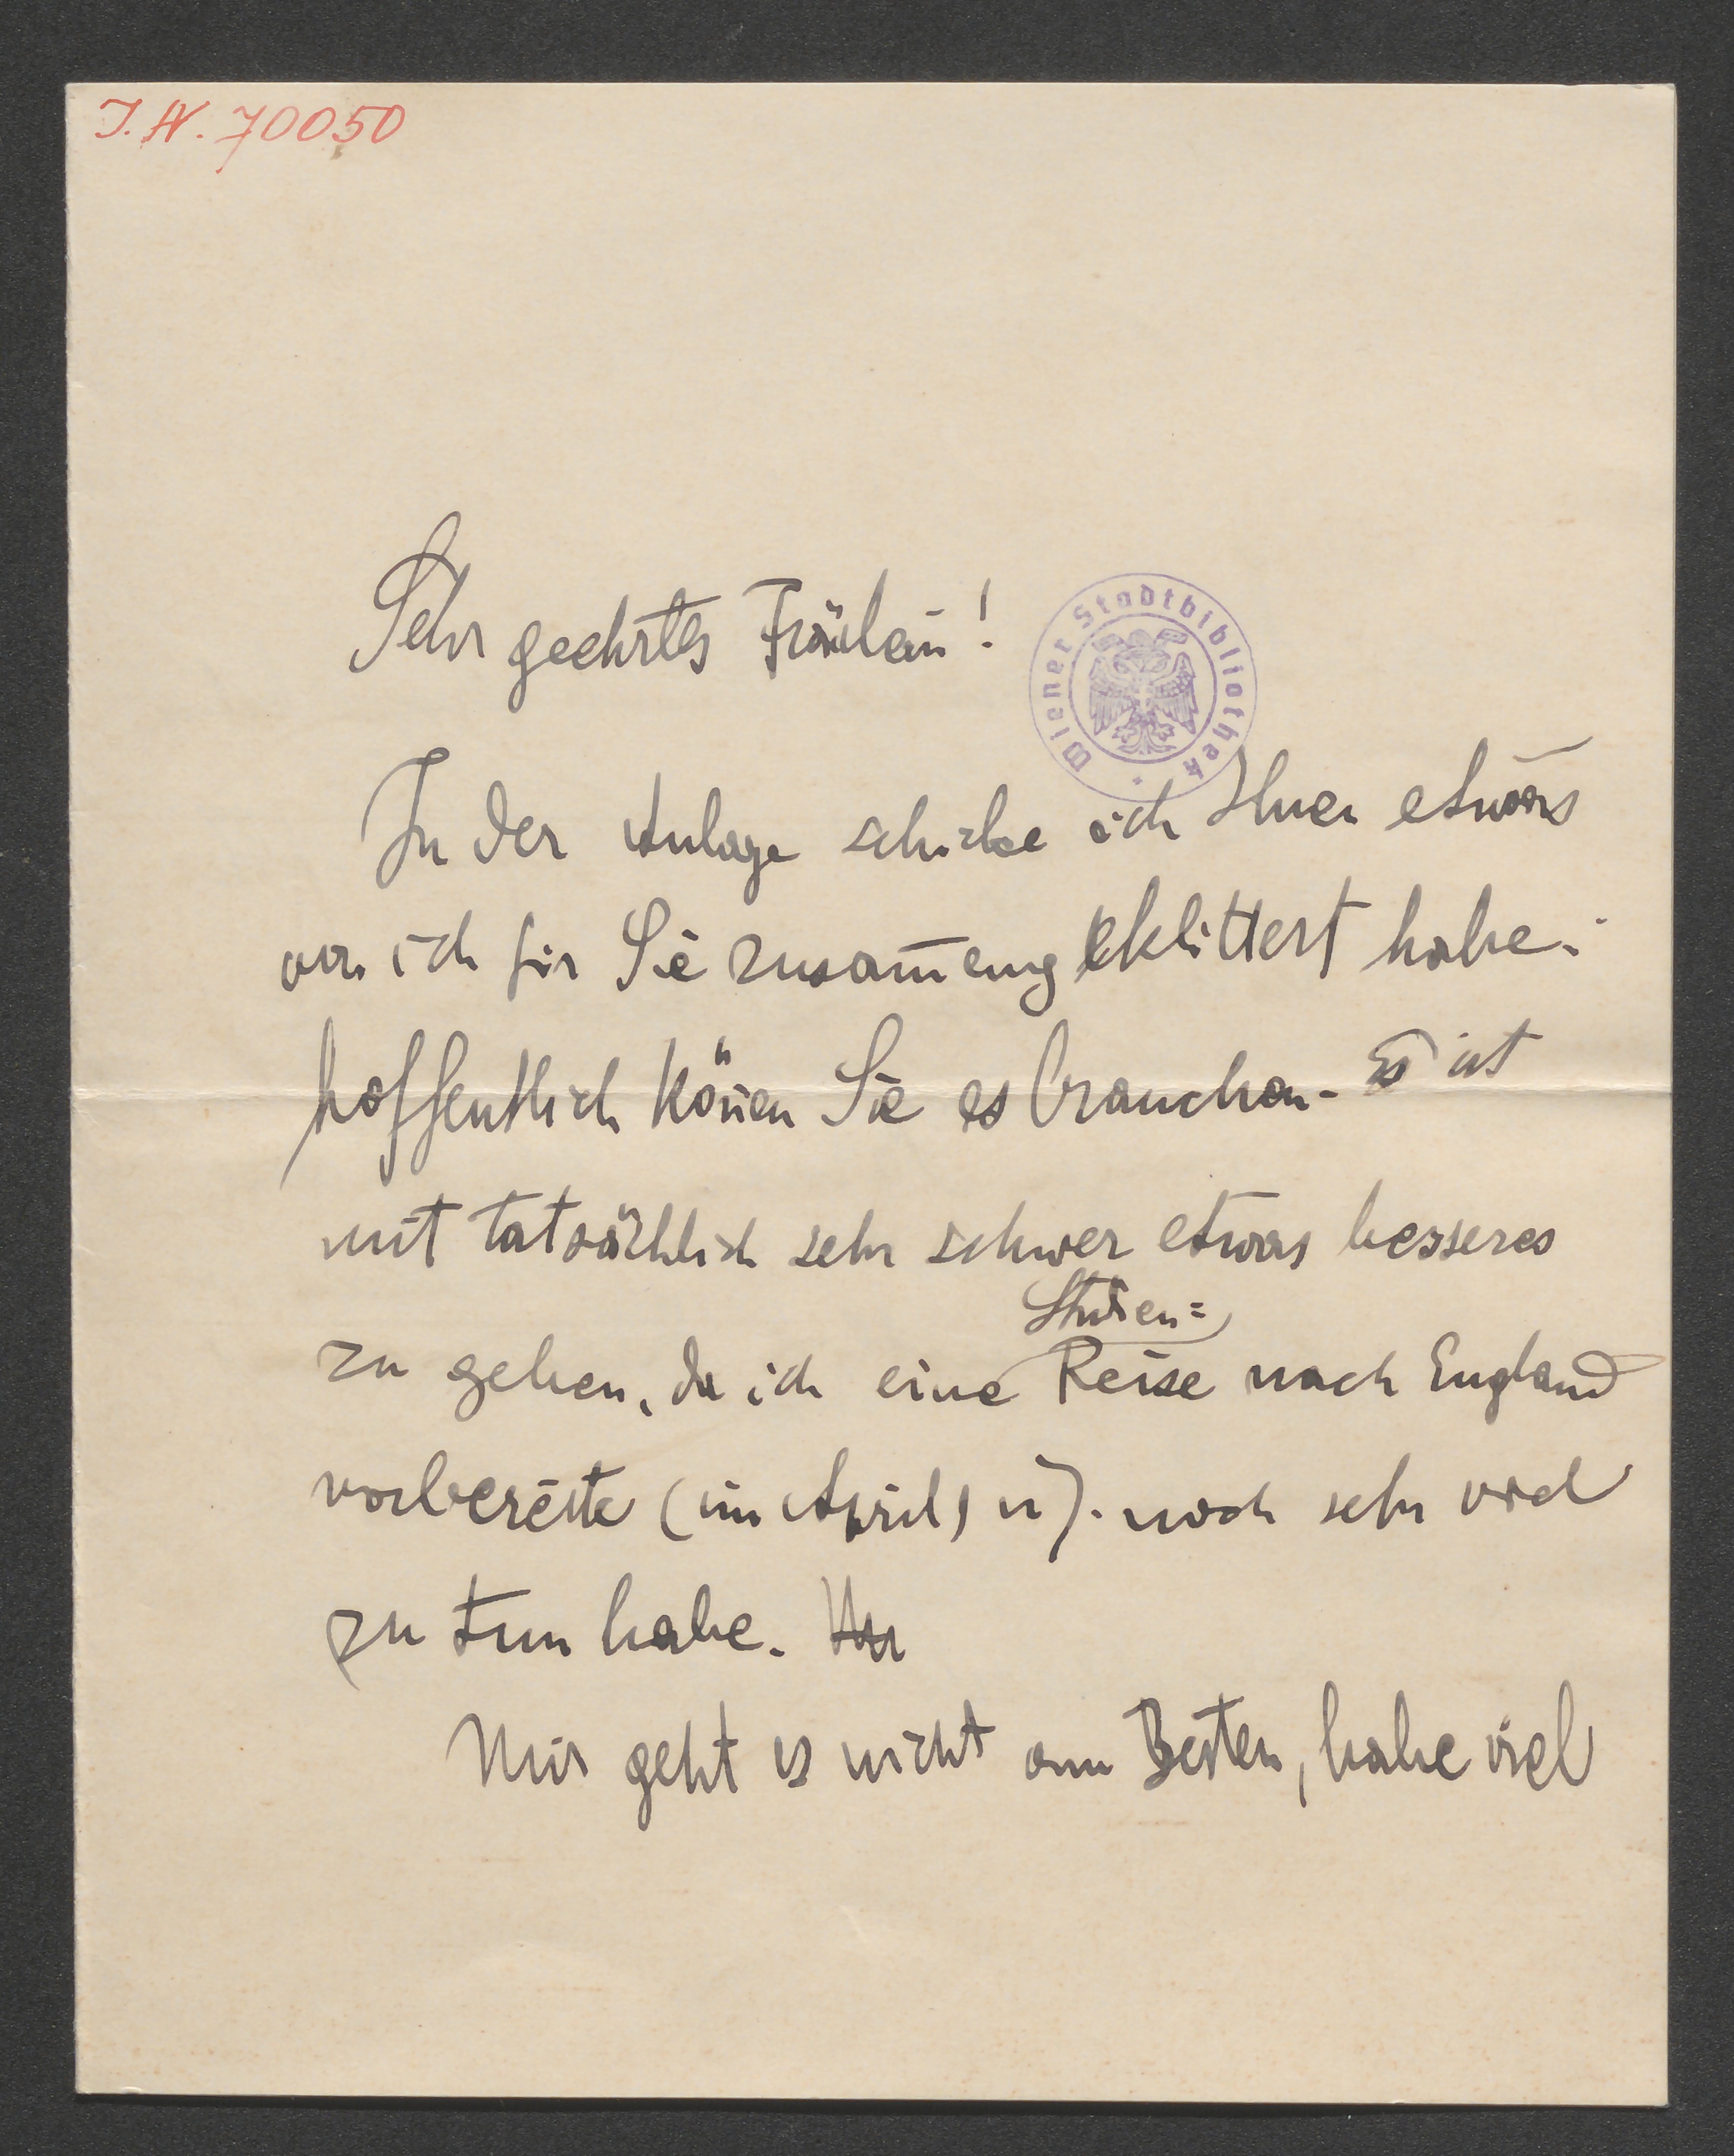 J.N. 70050
Sehr geehrtes Fräulein!
Wiener Stadtbibliothek
In der Anlage schicke ich Ihnen etwas
was ich für Sie zusam̅engeklittert habe.
hoffentlich kön̅en Sie es brauchen. Es ist
mit tatsächlich sehr schwer etwas besseres
Studien=
zu geben, da ich eine Reise nach England
vorbereite (im April) u. noch sehr viel
zu tun habe.
Mir geht es nicht am Besten, habe viel